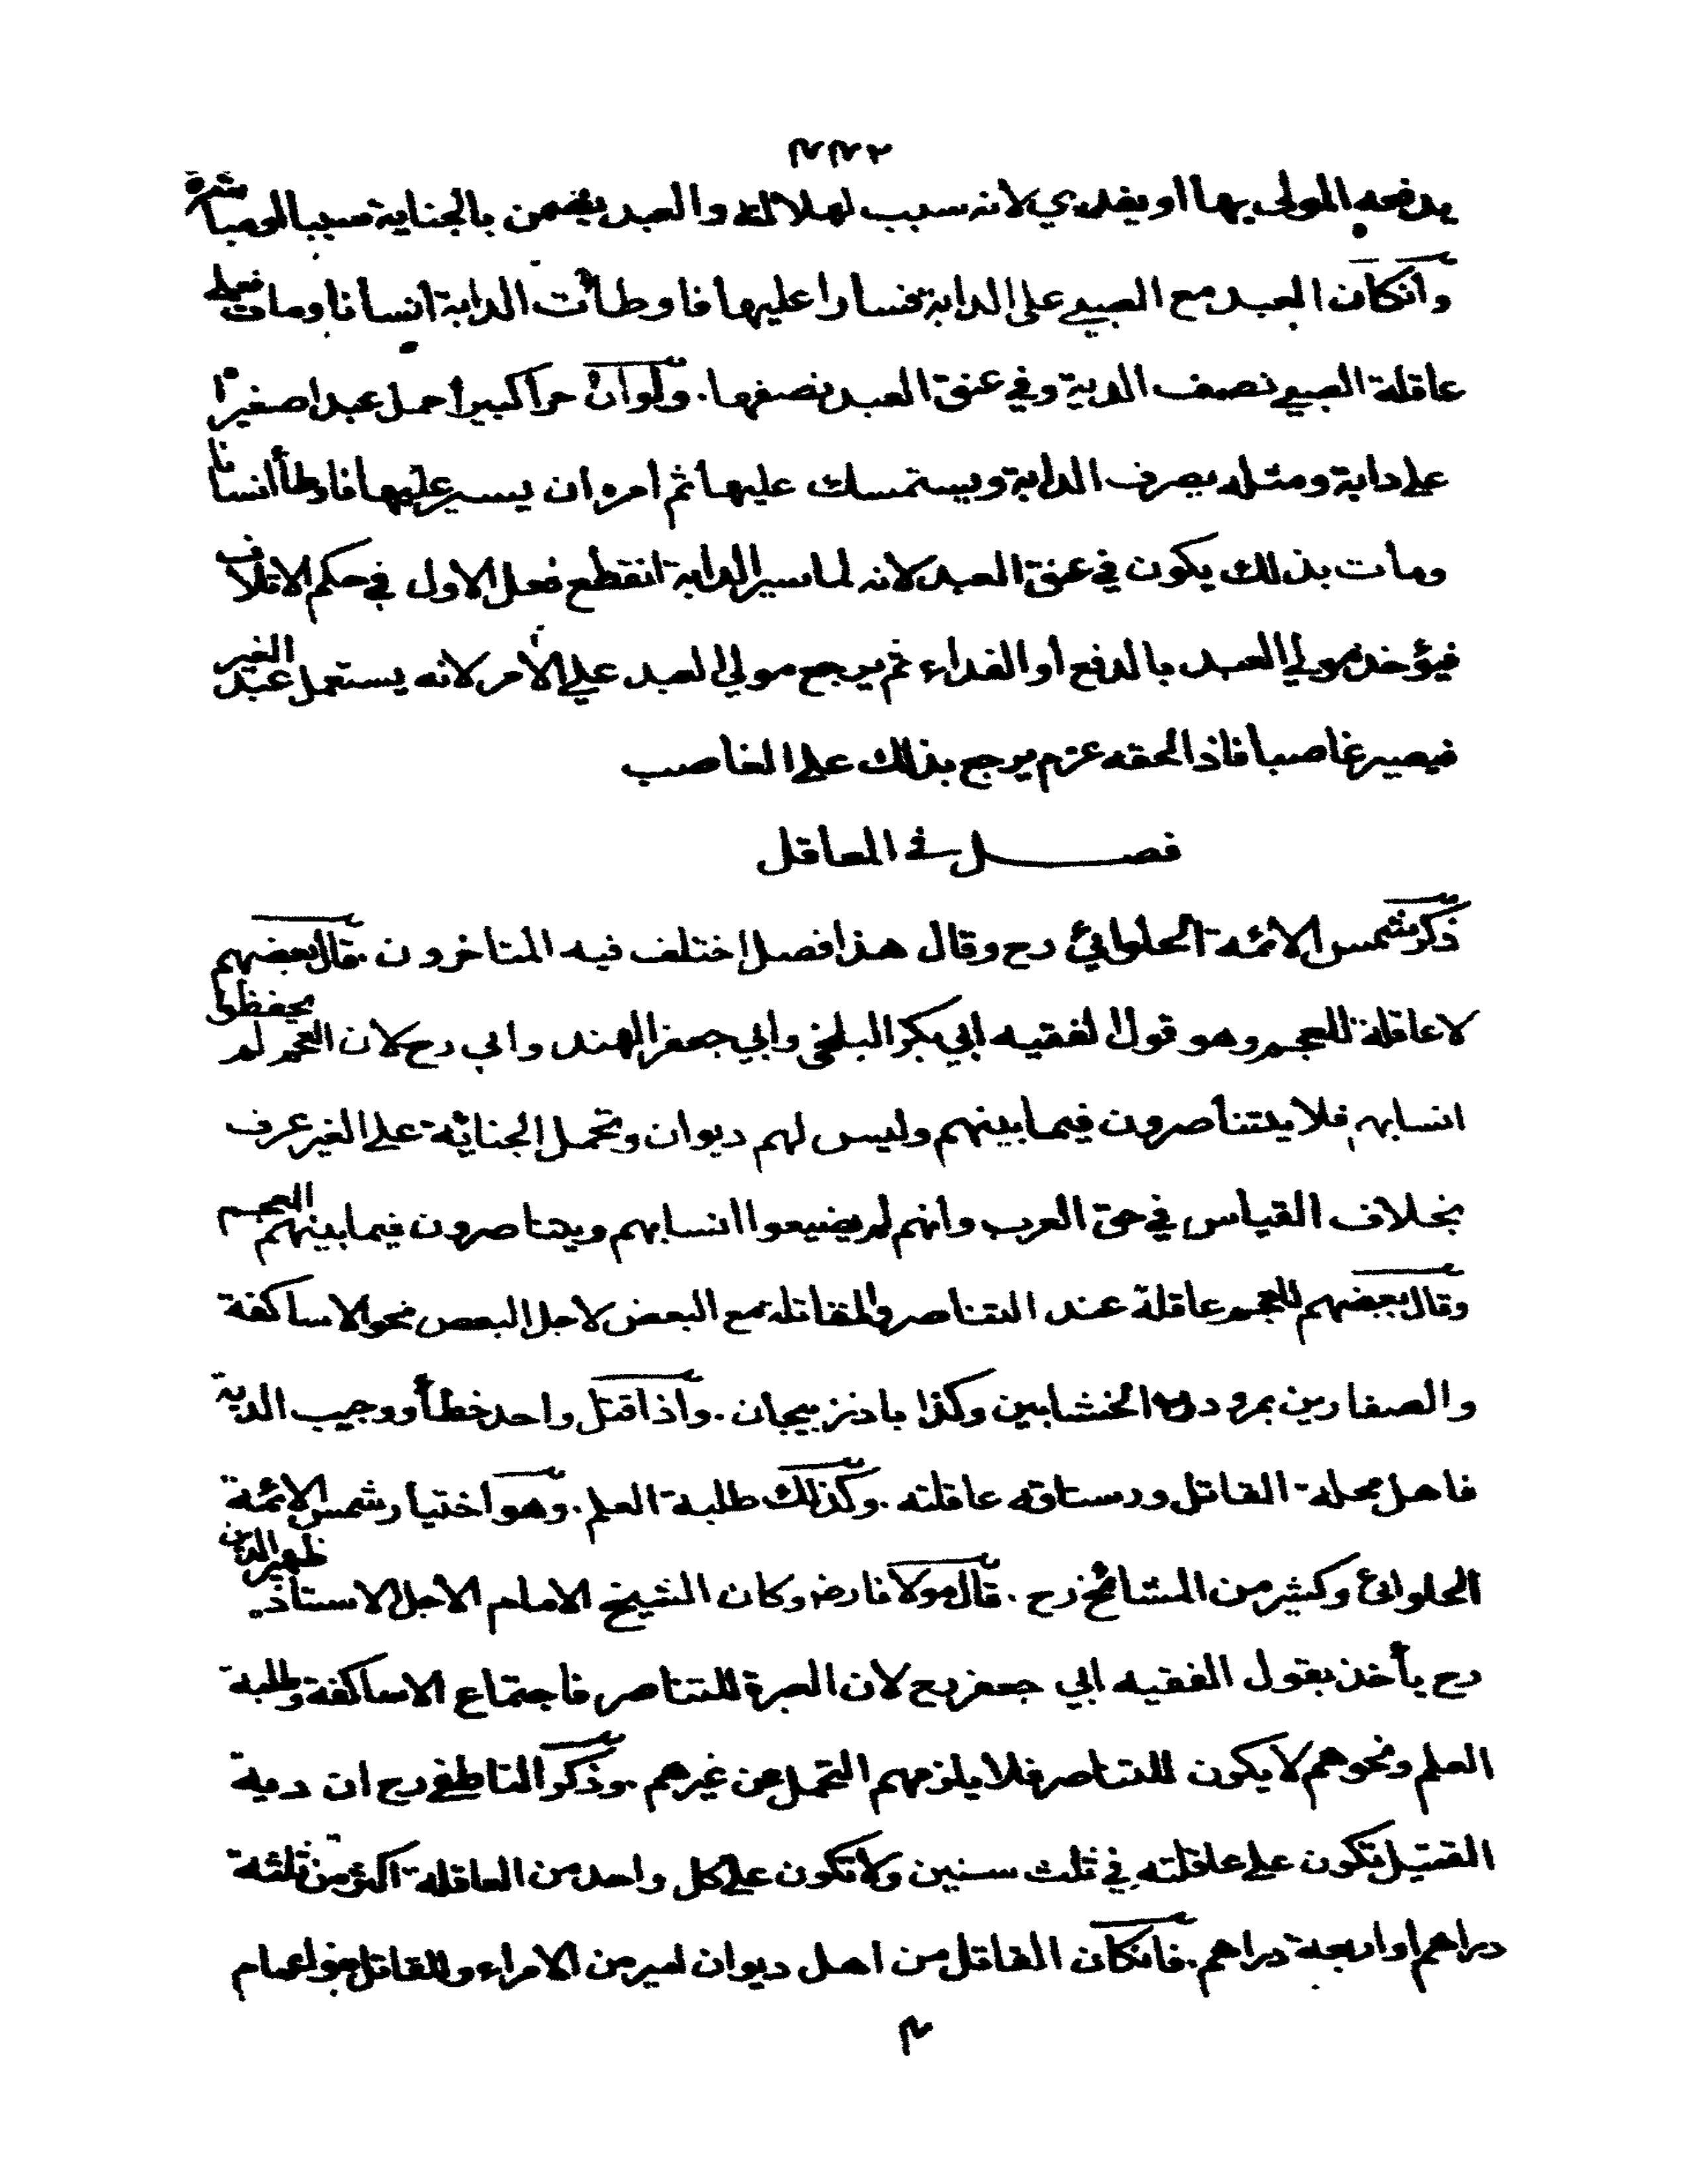 ٣٣٢
يدفعه المولى بها او يفدي لانه سبب لهلاكه والعبد يضمن بالجناية سببا او مباشرة
وانكان العبد مع الصبي على الدابة فسارا عليها فاوطأت الدابة انسانا ومات فعلى
عاقلة الصبي نصف الدية وفي عنق العبد نصفها. ولو ان حرا كبيرا حمل عبدا صغيرا
على دابة ومثله يصرف الدابة ويستمسك عليها ثم امره ان يسير عليها فاوطأ انسانا
ومات بذلك يكون في عنق العبد لانه لما سير الدابة انقطع فعل الاول في حكم الاتلاف
فيؤخذ مولي العبد بالدفع او الفداء ثم يرجع مولي العبد علي الآمر لانه يستعمل عبد الغير
فيصير غاصبا فاذا لحقه غرم يرجع بذلك على الغاصب
فصل في المعاقل
ذكر شمس الائمة الحلوائي رح وقال هذا فصل اختلف فيه المتاخرون. قال بعضهم
لا عاقلة للعجم وهو قول الفقيه ابي بكر البلخي وابي جعفر الهندواني رح لان العجم لم يحفظوا
انسابهم فلا يتناصرون فيما بينهم وليس لهم ديوان وتحمل الجناية على الغير عرف
بخلاف القياس في حق العرب وانهم لم يضيعوا انسابهم ويتناصرون فيما بينهم العجم
وقال بعضهم للعجم عاقلة عند التناصر والمقاتلة مع البعض لاجل البعض نحو الاساكفة
والصفارين بمرو ودرب الخشابين وكذا باذربيجان. واذا قتل واحد خطأ ووجب الدية
فاهل محلة القاتل ورستاقه عاقلته. وكذلك طلبة العلم. وهو اختيار شمس الائمة
الحلوائي وكثير من المشائخ رح. قال مولانا رض وكان الشيخ الامام الاجل الاستاذ ظهير الدين
رح يأخذ بقول الفقيه ابي جعفر رح لان العبرة للتناصر فاجتماع الاساكفة وطلبة
العلم ونحوهم لا يكون للتناصر فلا يلزمهم التحمل عن غيرهم. وذكر الناطفي رح ان دية
القتيل تكون على عاقلته في ثلث سنين ولا تكون على كل واحد من العاقلة اكثر من ثلثة
دراهم او اربعة دراهم. فانكان القاتل من اهل ديوان امير من الامراء وللقاتل بنو اعمام